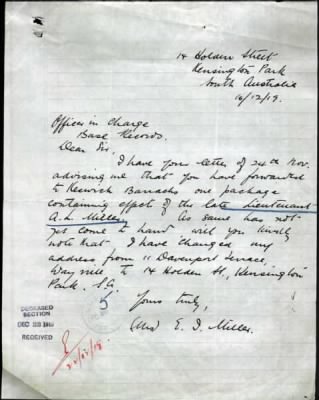 14 Holden Street
Kensington Park
South Australia
16/12/19.
Officer in Charge
Base Records.
Dear Sir,
I have your letter of 24th Nov.
advising me that you have forwarded
to Keswick Barracks one package
containing effect of the late Lieutenant
A. L. Miller. As same has not
yet come to hand will you kindly
note that I have changed my
address from 11 Davenport Terrace,
Wayville to 14 Holden St, Kensington
Park. S.A.
Yours truly,
(Mrs) E. I. Miller.
DECEASED
SECTION
DEC 1919
RECEIVED
5